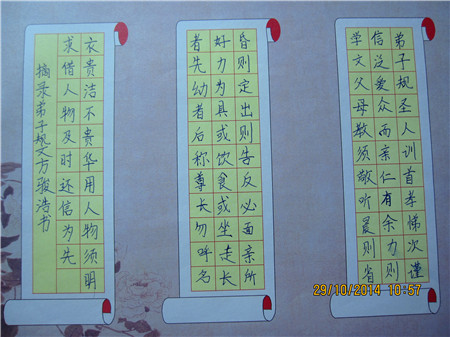 弟子规圣人训首孝悌次谨
信泛爱众而亲仁有余力则
学文父母教须敬听晨则省
昏则定出则告反必面亲所
好力为具或饮食或坐走长
者先幼者后称尊长勿呼名
衣贵洁不贵华用人物须明
求借人物及时还信为先
摘录弟子规文方骏浩书
29/10/2014 10:57